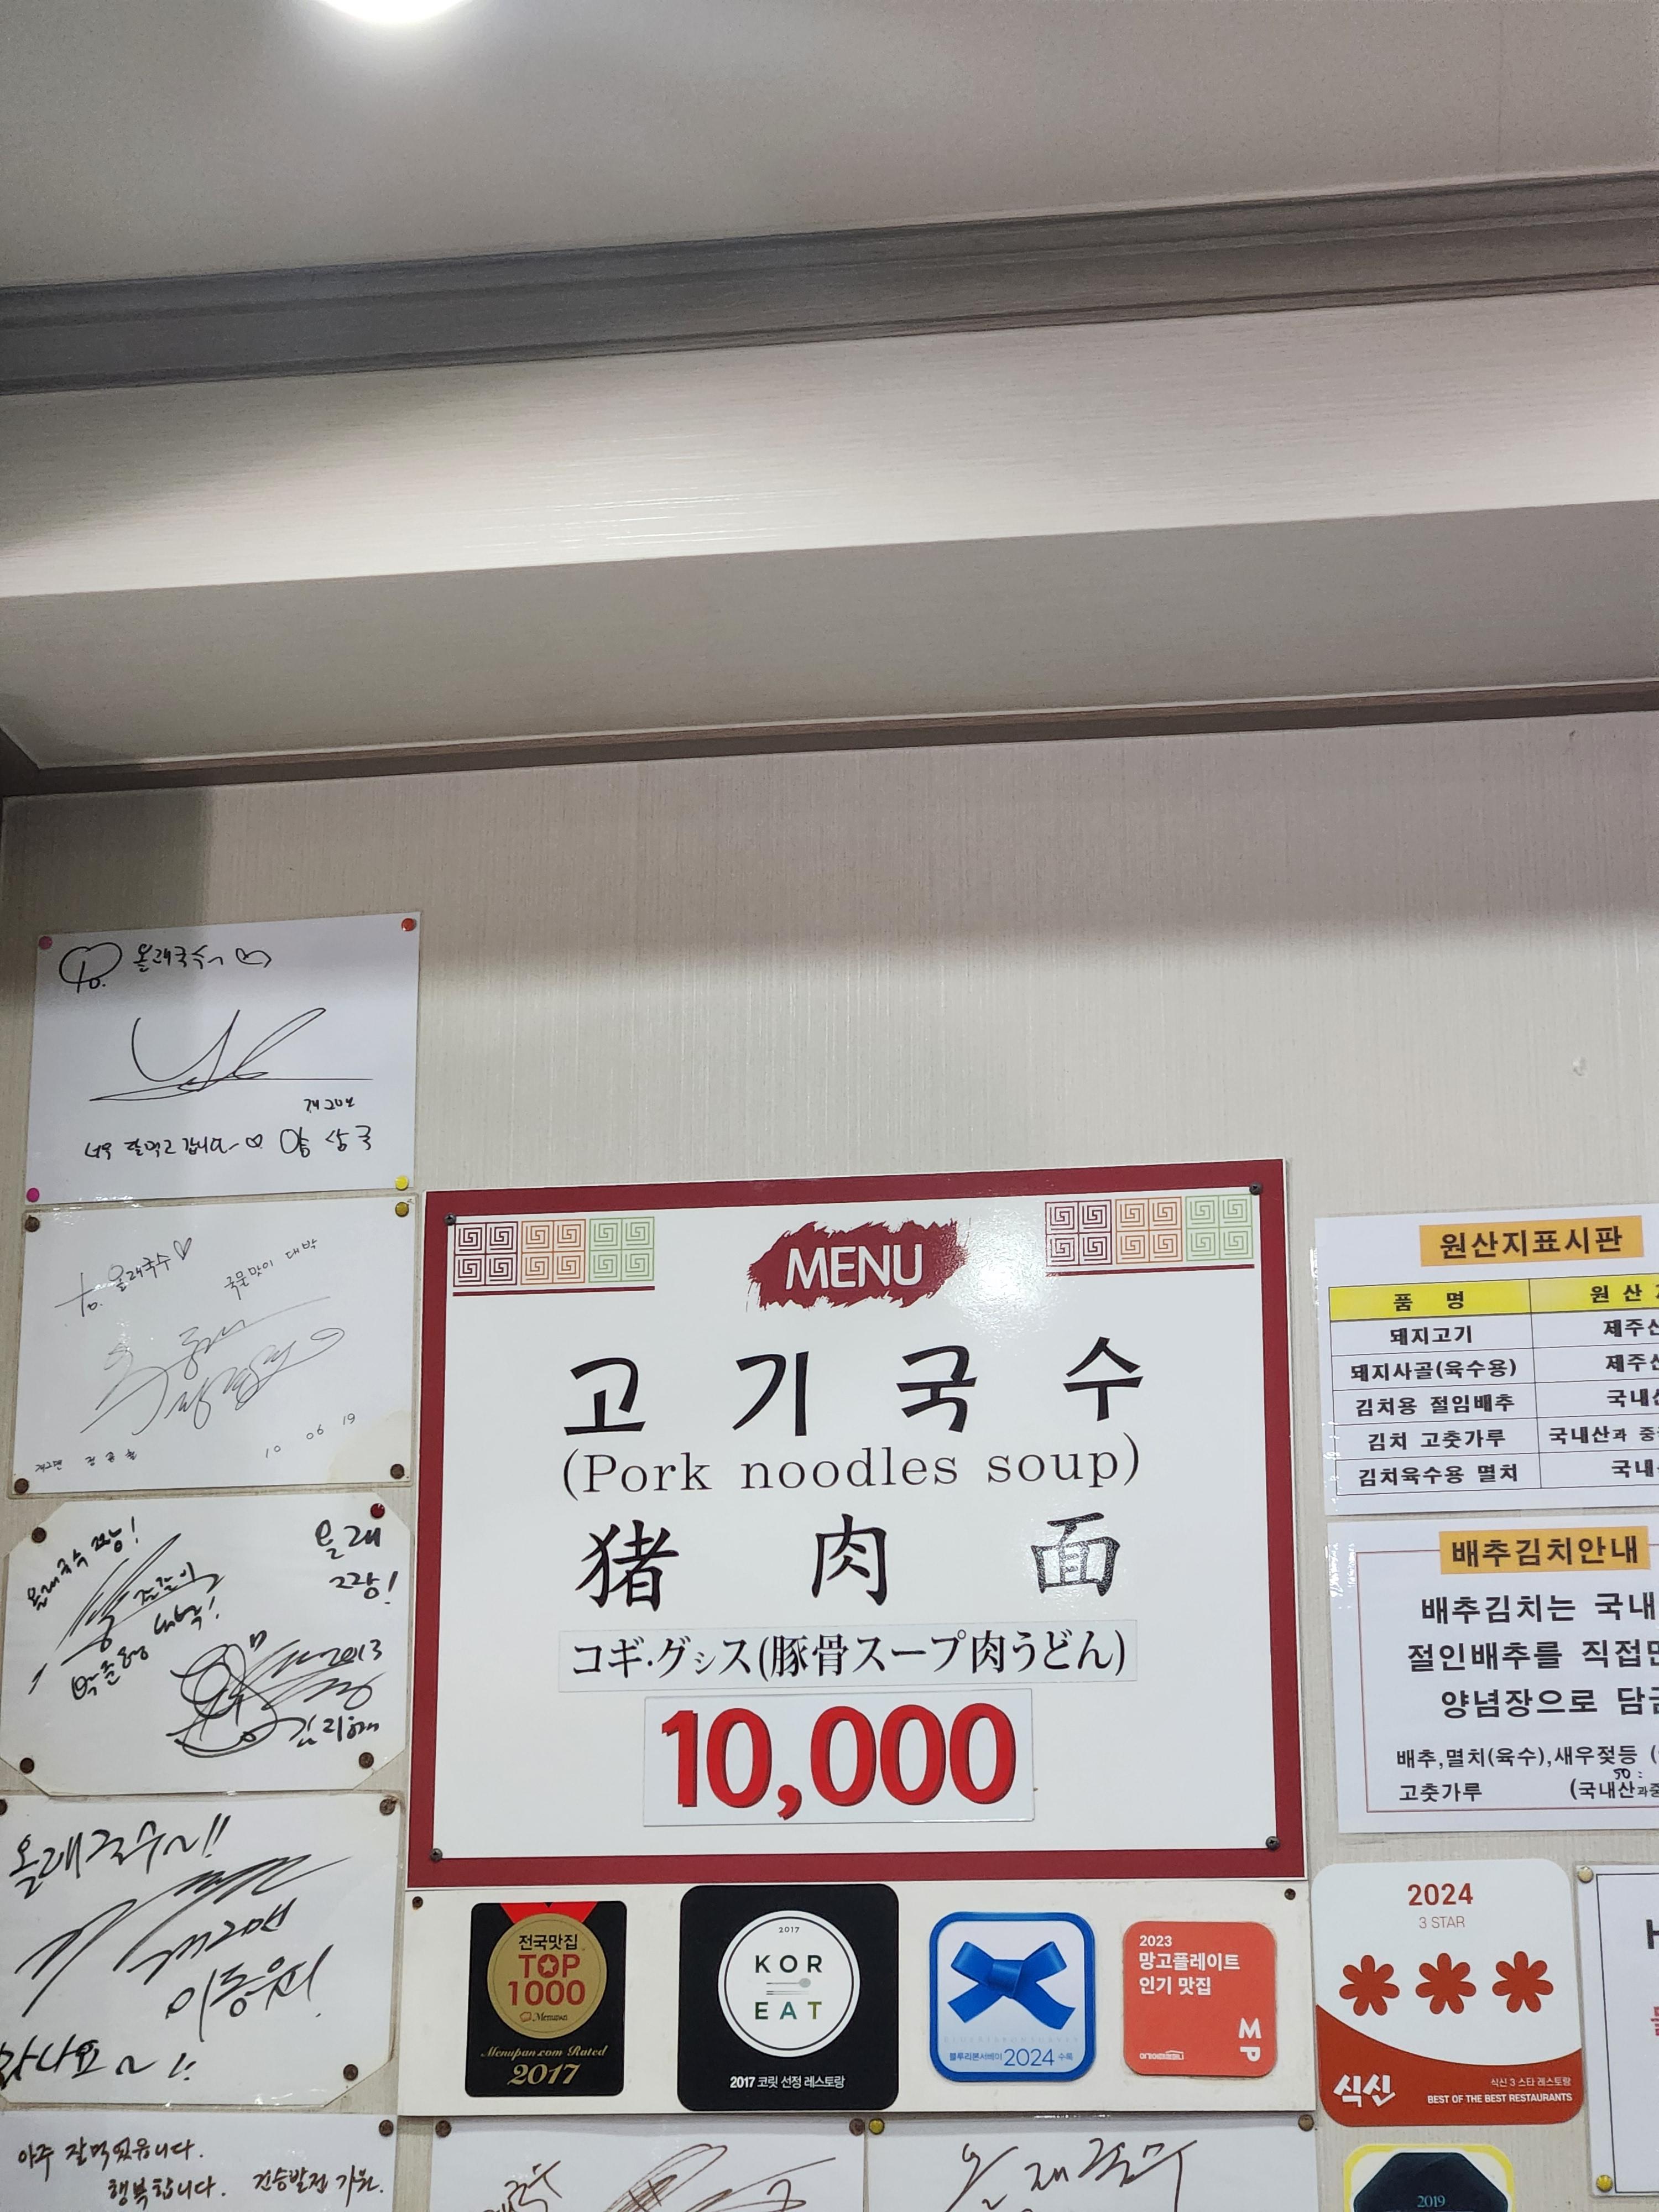 To. 올래국수
개그맨
너무 잘먹고 갑니다~ 양상국
to. 올래국수
국물맛이 대박
개그맨
10 06 19
올래국수 짱!
올래
2013
올래국수~!!
개그맨
이동윤!
아주 잘먹었읍니다.
행복합니다.
MENU
고기국수
(Pork noodles soup)
猪肉面
コギ·グシス(豚骨スープ肉うどん)
10,000
전국맛집
TOP
1000
Menupan
Menupan.com Rated
2017
2017
KOR
EAT
2017 코릿 선정 레스토랑
블루리본서베이 2024 수록
2023
망고플레이트
인기 맛집
MP
원산지표시판
품 명 원 산
돼지고기 제주
돼지사골(육수용) 제주
김치용 절임배추 국내
김치 고춧가루 국내산과 중
김치육수용 멸치 국내
배추김치안내
배추김치는 국내
절인배추를 직접
양념장으로 담
배추,멸치(육수),새우젖등 (
50:
고춧가루 (국내산과중
2024
3 STAR
식신
식신 3 스타 레스토랑
BEST OF THE BEST RESTAURANTS
2019